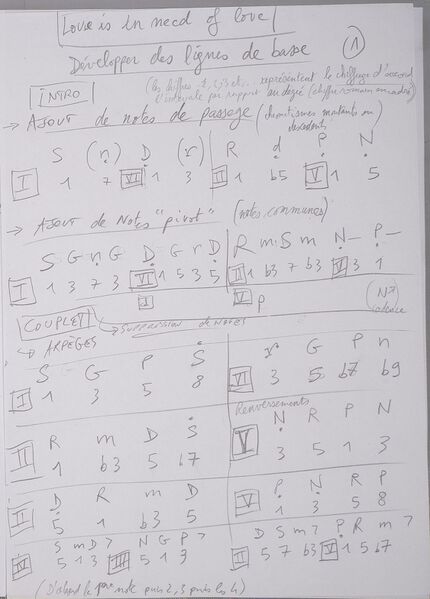 Love is in need of love
Développer des lignes de basse
1
INTRO
(les chiffres 1, 2, 3 etc.. représentent le chiffrage d'accord
d'intervalle par rapport au degré (chiffre romain encadré)
→ AJOUT de notes de passage (chromatismes montants ou
descendants
S (n) D (r) R d P N
I 1 7 VI 1 3 II 1 b5 V 1 5
→ AJOUT de Notes "pivot" (notes communes)
S G n G D G r D R m S m N — P —
I 1 3 7 3 VI 1 5 3 5 II 1 b3 7 b3 V 3 1
I V P
COUPLET → SUPPRESSION de NOTES
→ ARPÈGES
S G P S
I 1 3 5 8
r G P n
VI 3 5 b7 b9
Renversements
R m D S
II 1 b3 5 b7
N R P N
V 3 5 1 3
D R m D
II 5 1 b3 5
P N R P
V 1 3 5 8
S m D > N G P >
IV III 5 1 3
D S m > P R m >
II 5 7 b3 V 1 5 b7
(D'abord la 1ère note puis 2, 3 puis les 4)